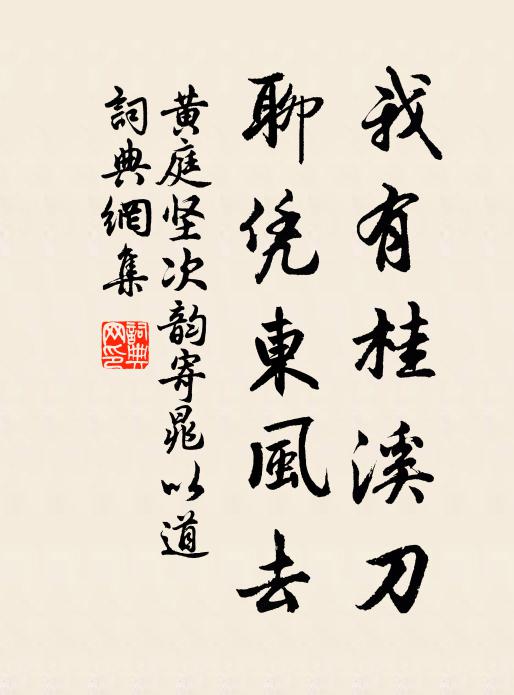 我有桂溪刀
聊凭東風去
黄庭坚次韵寄晁以道
詞典網集
詞典網印